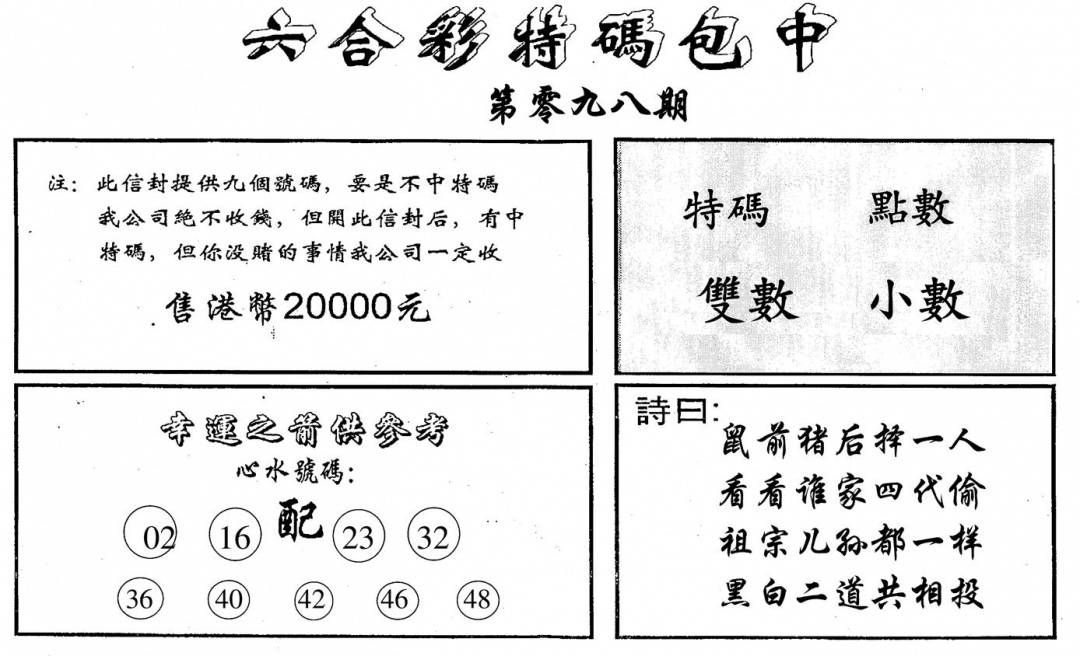 六合彩特碼包中
第零九八期
注：此信封提供九個號碼，要是不中特碼
我公司絕不收錢，但開此信封后，有中
特碼，但你没賭的事情我公司一定收
售港幣20000元
特碼 點數
雙數 小數
幸運之箭供參考
心水號碼：
配
02 16 23 32
36 40 42 46 48
詩曰：
鼠前猪后择一人
看看谁家四代偷
祖宗儿孙都一样
黑白二道共相投